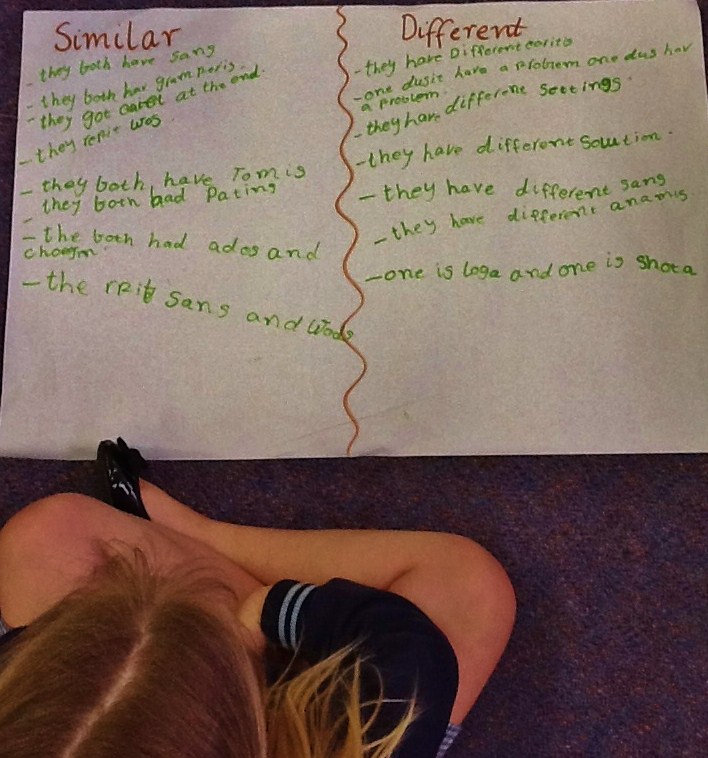 Similar
- they both have sang
- they both hav gramperis.
- they got catet at the end.
- they repit wos
- they both have Tomis
- they both had Pating
- the both had ados and
choesm
- the rpit sans and wods
Different
- they have Different carits
- one dusit have a problem one dus hav
a problem.
- they have different settings.
- they have different Solution.
- they have different sang
- they have different anamis
- one is loga and one is Shota